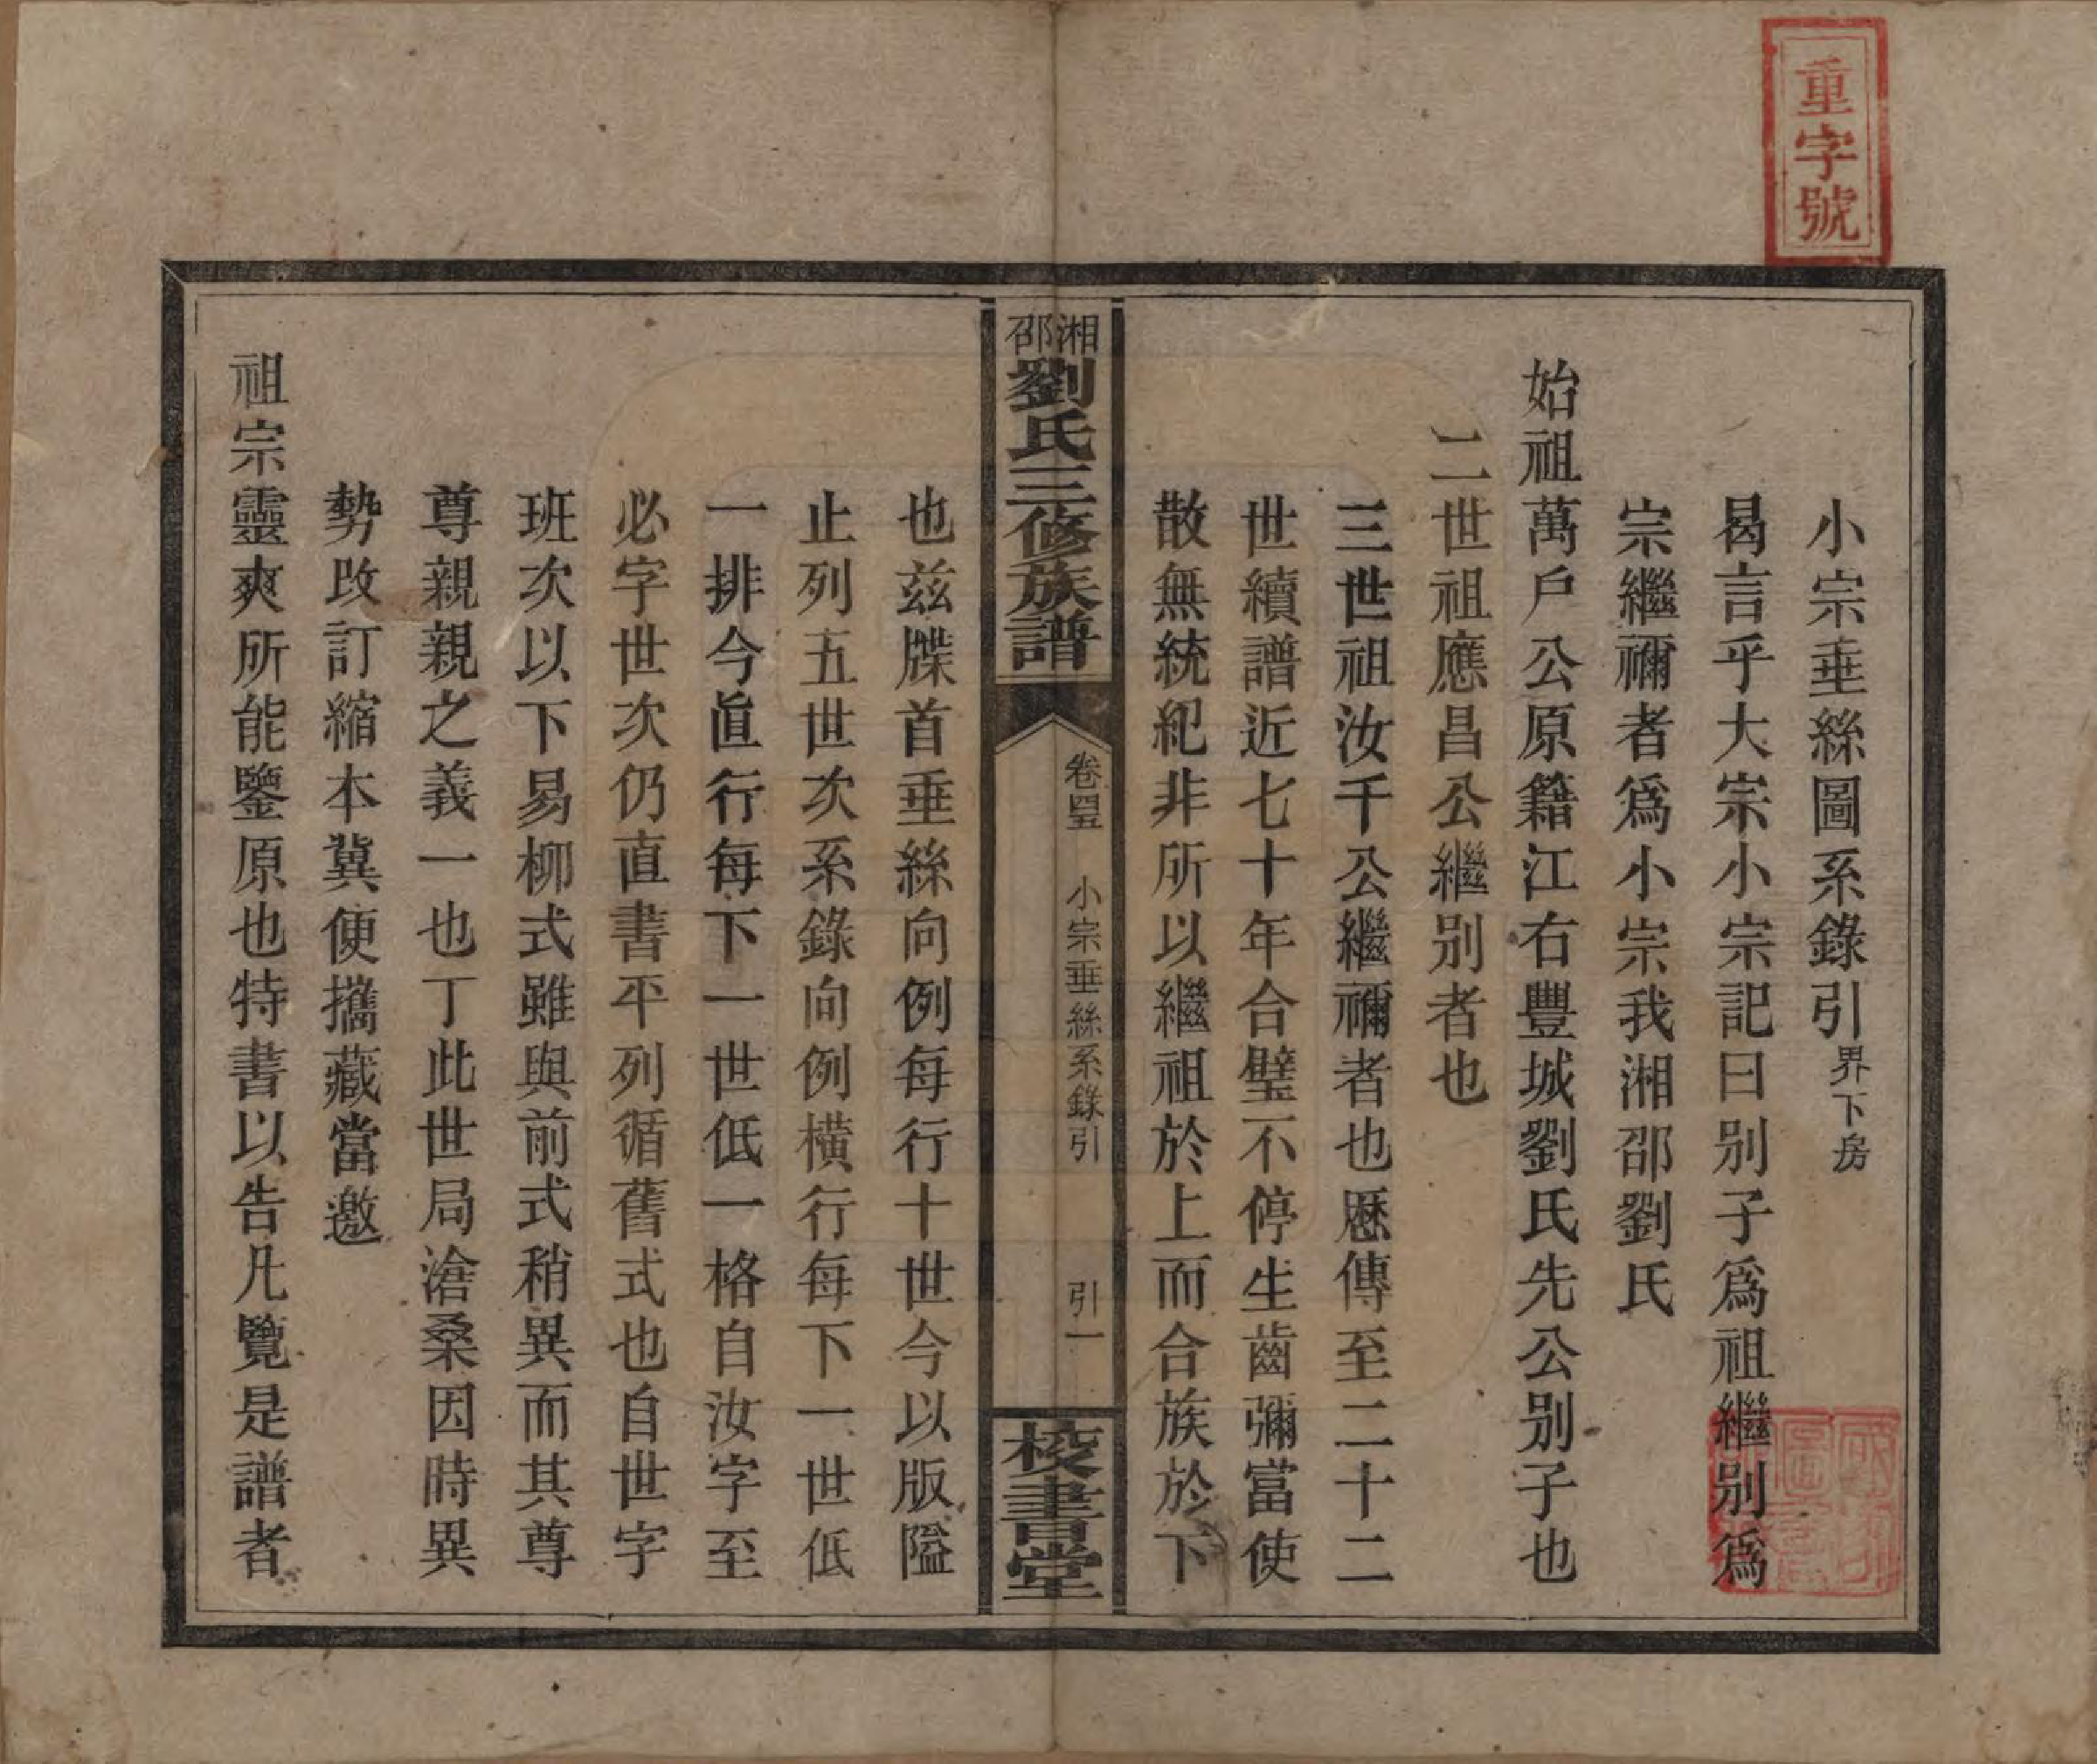 重字號
小宗垂絲圖系錄引界下房
曷言乎大宗小宗記曰別子爲祖繼別爲
宗繼禰者爲小宗我湘邵劉氏
始祖萬戶公原籍江右豐城劉氏先公別子也
二世祖應昌公繼別者也
三世祖汝千公繼禰者也歷傳至二十二
世續譜近七十年合璧不停生齒彌當使
散無統紀非所以繼祖於上而合族於下
湘邵劉氏三修族譜
卷四五 小宗垂絲系錄引 引一
校書堂
也茲牒首垂絲向例每行十世今以版隘
止列五世次系錄向例橫行每下一世低
一排今直行每下一世低一格自汝字至
必字世次仍直書平列循舊式也自世字
班次以下易柳式雖與前式稍異而其尊
尊親親之義一也丁此世局滄桑因時異
勢改訂縮本冀便攜藏當邀
祖宗靈爽所能鑒原也特書以告凡覽是譜者